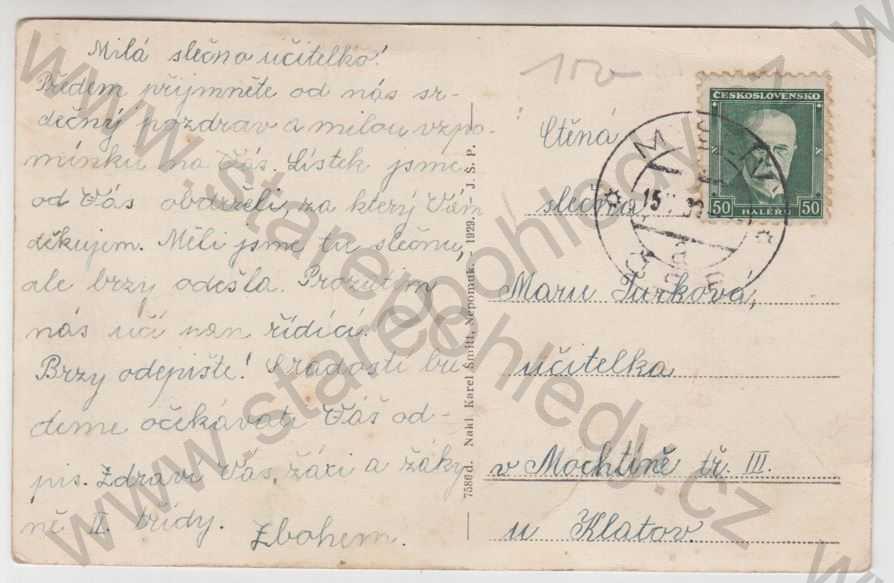 Milá slečno učitelko!
Předem přijmněte od nás sr-
dečný pozdrav a milou vzpo-
mínku na Vás. Lístek jsme
od Vás obdrželi, za který Vám
děkujem. Měli jsme tu slečnu,
ale brzy odešla. Prozatím
nás učí pan řídící.
Brzy odepište! S radostí bu-
deme očekávati Váš od-
pis. Zdraví Vás, žáci a žáky-
ně II. třídy.
Zbohem.
7586 d. Nakl. Karel Šmitt, Nepomuk. - 1929. J. Š. P.
150
ČESKOSLOVENSKO
50 HALÉŘŮ 50
15
Ctěná
slečna
Marie Turková,
učitelka
v Mochtíně tř. III.
u Klatov.
www.starepohledy.cz
www.starepohledy.cz